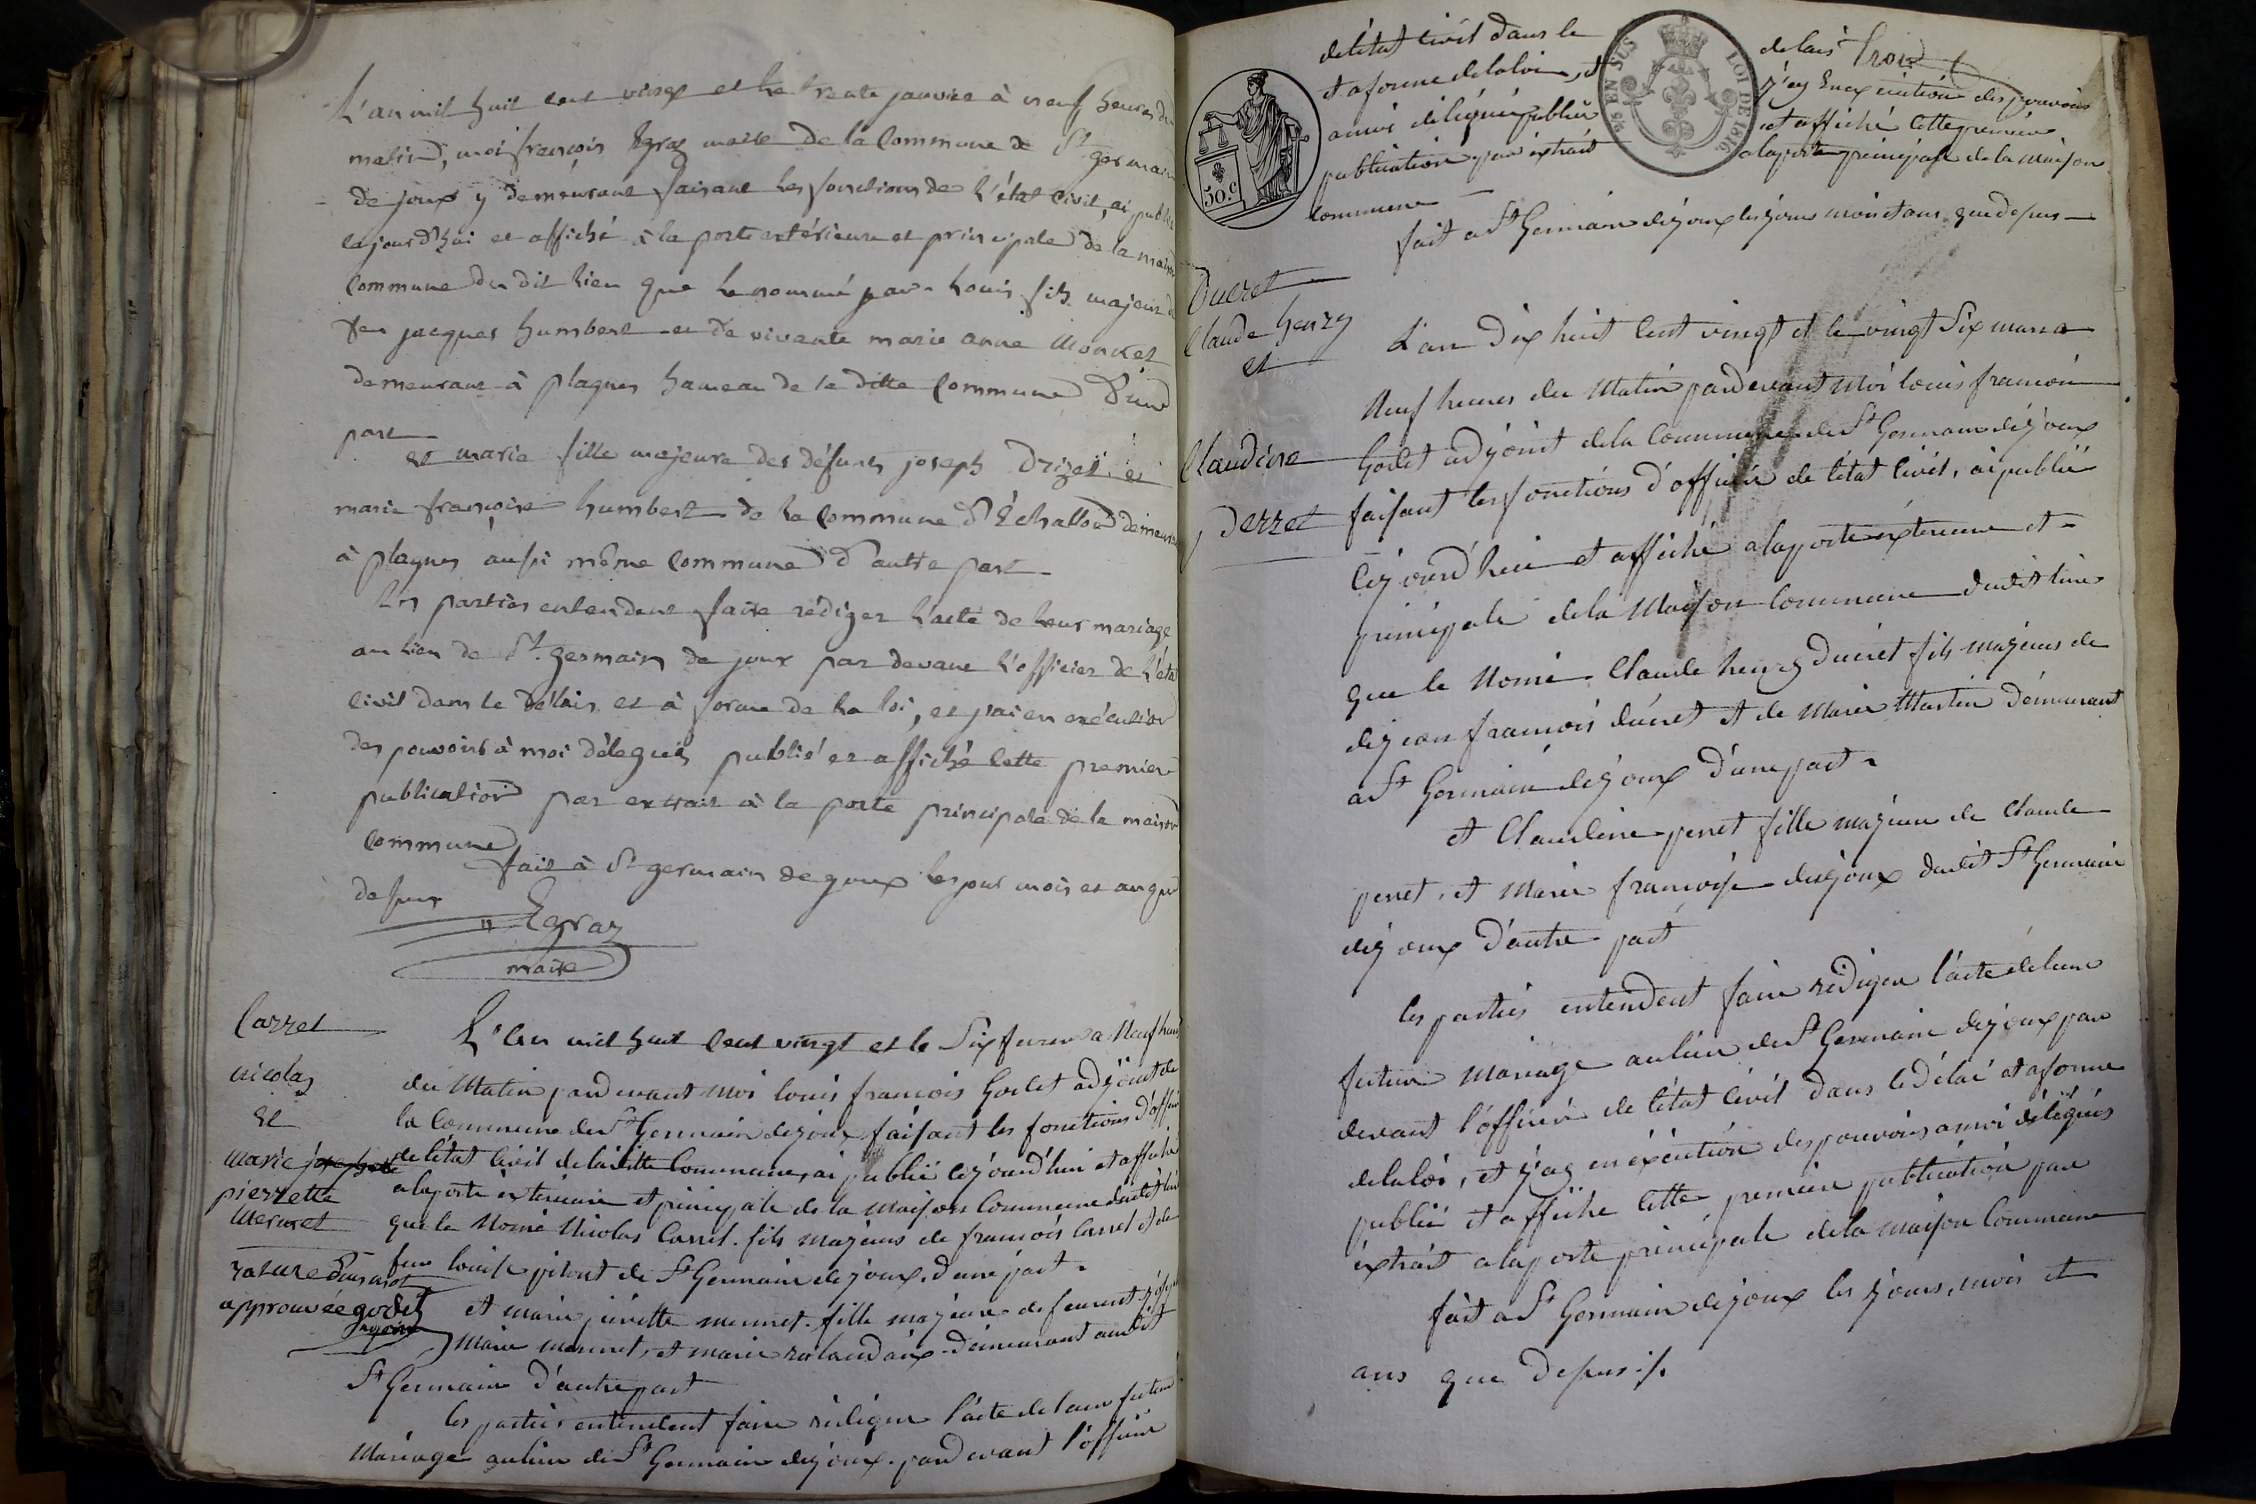 L'an mil huit cent vingt et le trente janvier à neuf heures du
matin, moi françois Egraz maire de la Commune de St germain
de joux y demeurant faisant les fonctions de l'état Civil, ai publié
cejourd'hui et affiché à la porte extérieure et principale de la maison
Commune du dit lieu que le nommé louis fils majeur de
feu jacques humbert et de vivante marie anne Moncret
demeurant à plagnes hameau de la ditte Commune D'une
part
et marie fille majeure des défunts joseph Drizet et
marie françoise humbert de la Commune d'Échallon demeurant
à plagnes aussi même Commune d'autre part
Les parties entendent faire rédiger l'acte de leur mariage
au lieu de St. germain de joux par devant l'officier de l'état
Civil dans le délais et à forme de la loi, et j'ai en exécution
des pouvoirs à moi délégués publié et affiché Cette premiere
publication par extrait à la porte principale de la maison
Commune
fait à St germain de joux les jour mois et an que
dessus
Egraz
maire
Carret
nicolas
et
marie josephte
pierrette
Mermet
rature D'un mot
approuvée godet
L'an mil huit Cent vingt et le Six fevrier a Neuf heures
du Matin pardevant Moi louis françois Godet adjoint de
la Commune de St Germain dejoux faisant les fonctions d'officier
de létat Civil de laditte Commune, ai publié cejourd'hui et affiché
alaporte éxterieure et principale de la Maison Commune dudit lieu
que le Nomé Nicolas Carret fils majeur de françois Carret et de
feue louise pitout de St Germain dejoux. d'une part
et marie pierrette mermet fille majeure de
Marie mermet, et marie demeurant audit
St Germain d'autrepart
les parties entendent faire rédiger l'acte de leur futur
Mariage aulieu de St Germain dejoux. pardevant l'officier
delétat Civil dans le délais trois
et aforme delaloi, et j'ay Enexécution des pouvoirs
amoi délégués publié et affiché Cette premiere
publication par éxtrait alaporte principale de la Maison
Commune
fait a St Germain dejoux les jour mois et ans que dessus
50.c
96 EN SUS
LOI DE 1816.
Ducret
Claude henry
et
Claudine
perret
L'an Dix huit Cent vingt et le vingt Six mars a
Neuf heures du Matin pardevant Moi louis françois
Godet adjoint dela Commune de St Germain dejoux
faisant les fonctions d'officier de létat Civil, ai publié
Cejourd'hui et affiché alaporte éxterieure et
principale dela Maison Commune dudit lieu
que le Nomé Claude henry ducret fils majeur de
dejean françois ducret et de Marie Martin Démeurant
a St Germain dejoux d'une part
et Claudine perret fille majeure de Claude
perret, et Marie françoise dejoux dudit St Germain
dejoux d'autre part
les parties entendent faire rédiger l'acte deleur
futur Mariage aulieu de St Germain dejoux par
devant l'officier de létat Civil dans le délai et aforme
delaloi, et j'ay en éxécution des pouvoirs amoi délégués
publié et affiché Cette premiere publication par
éxtrait alaporte principale dela Maison Commune
fait a St Germain dejoux les jours, mois et
ans que dessus ./.